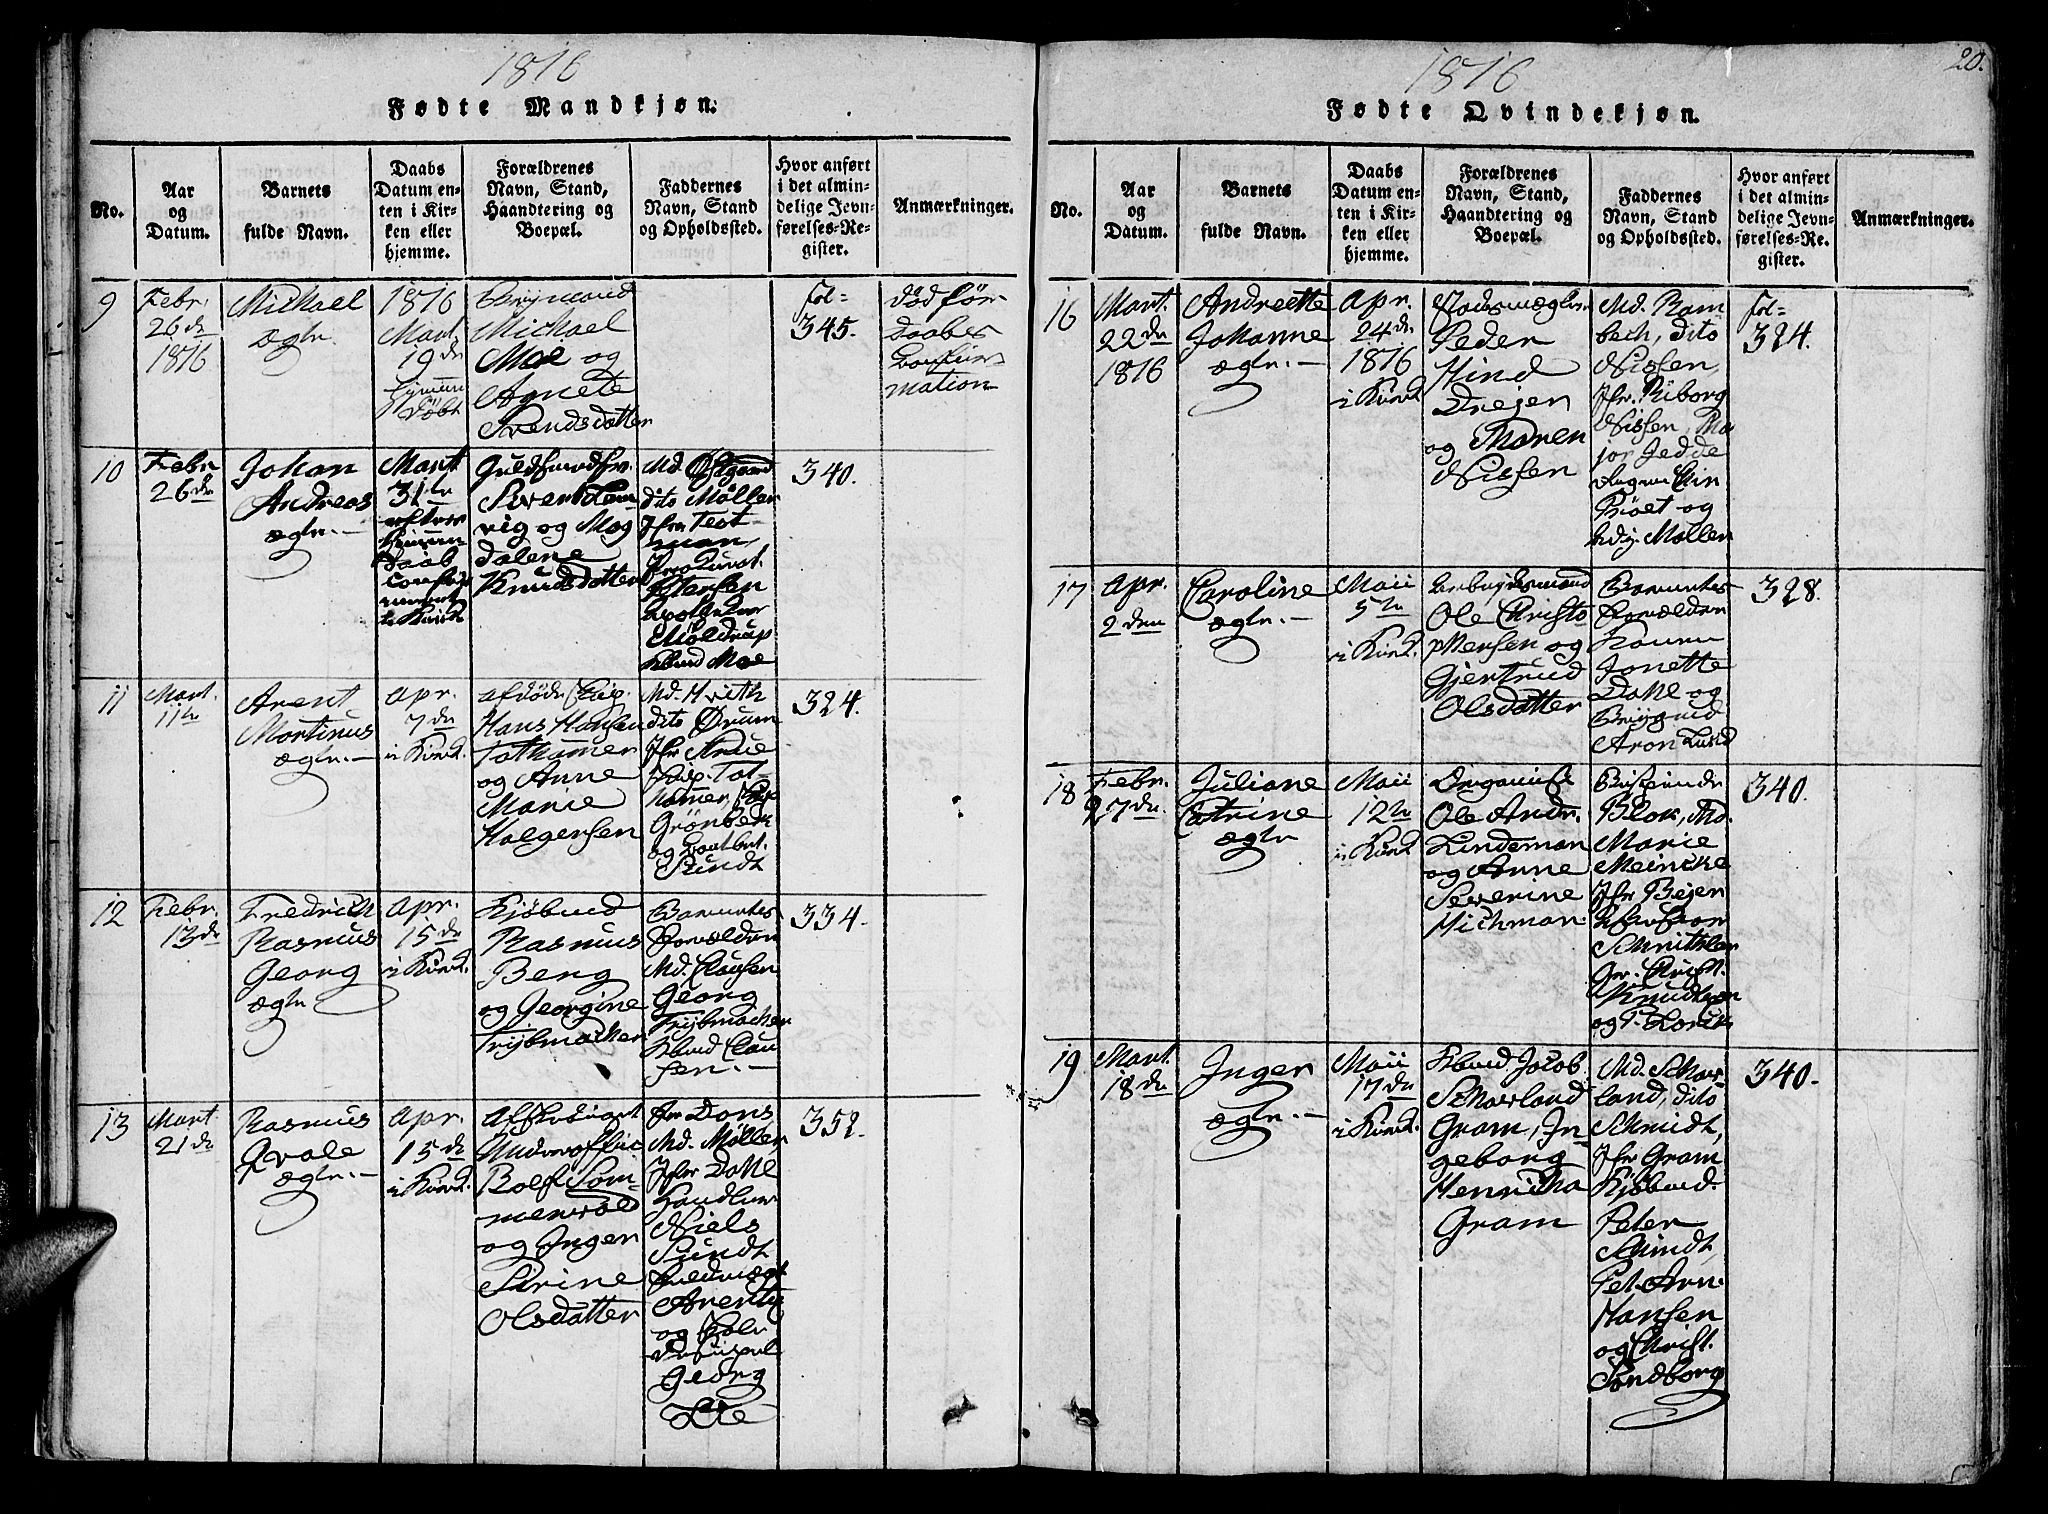 1816
Fødte Mandkjøn.
No.
Aar
og
Datum.
Barnets
fulde Navn.
Daabs
Datum en-
ten i Kir-
ken eller
hjemme.
Forældrenes
Navn, Stand,
Haandtering og
Boepæl.
Faddernes
Navn, Stand
og Opholdssted.
Hvor anført
i det almin-
delige Jevn-
førelses-Re-
gister.
Anmærkninger.
9
Febr.
26 de
1816
Michael
ægte.
1816
Mart.
19 de
Døbt
Michael
Moe og
Agnete
Svendsdatter
Fol-
345.
Død før
Daabes
Confir-
mation
10
Febr.
26 de
Johan
Andreas
ægte.
Mart.
31te
i Kirke
Svend Lem
vig og Mag
dalene
Knudsdatter
Md. Østgaard
dito Møller
Jfr. Test-
man,
Petersen
Møldrup
Moe
340.
11
Mart.
11te
Arent
Martinus
ægte.
Apr.
7 de
i Kirk.
afdøde Skip.
Hans Hansen
Tothamer
og Anne
Marie
Holgersen
Md. Hvith
dito Ørum
Jfr.
Skip. Tot-
hamer, Skip
Grønbeck
og
Sundt
324.
12
Febr.
13 de
Fredrich
Rasmus
Georg
ægte
Apr.
15 de
i Kirk.
Kjøbmd
Rasmus
Berg
og Georgine
Trijbmacher
Barnets
Forældre
Md. Clausen
Georg
Trijbmacher
Kbmd Clau
sen.
334.
13
Mart.
21 de
Rasmus
Qvale
ægte.
Apr.
15 de
i Kirk.
Afskediget
Underoffic
Rolf Som-
mervold
og Inger
Sirine
Olsdatter
Jfr Dons
Md. Møller,
Jfr Dahl
Handlær
Niels
Sundt
Arentz
og Skole
Georg
Lie
352.
1816
20.
Fødte Qvindekjøn.
No.
Aar
og
Datum.
Barnets
fulde Navn.
Daabs
Datum en-
ten i Kir-
ken eller
hjemme.
Forældrenes
Navn, Stand,
Haandtering og
Boepæl.
Faddernes
Navn, Stand
og Opholdssted.
Hvor anført
i det almin-
delige Jevn-
førelses-Re-
gister.
Anmærkninger.
16
Mart.
22 de
1816
Andreette
Johanne
ægte.
Apr.
24 de
1816
i Kirk.
Stadsmægler
Peder
Hind
Dreyer
og Maren
Nissen
Md. Ram
bech, dito
Nissen,
Jfr. Riborg
Nissen, Ma
jor Jedde
og
Møller
Fol-
324.
17
Apr.
2 den
Caroline
ægte.
Maii
5te
i Kirk.
Arbeidsmand
Ole Christo
phersen og
Gjertrud
Olsdatter
Barnets
Forældre
Karen
Jonette
Dahl og
Aron Lund
328.
18
Febr.
27 de
Juliane
Catrine
ægte
Maii
12te
i Kirk.
Organist
Ole Andr.
Lindeman
og Anne
Severine
Hichman.
Blok, Md.
Marie
Meincke
Jfr Bejer
Schnitler
Hr. Christ.
Knudtzon
og P. Lorck
340.
19
Mart.
18 de
Inger
ægte.
Maii
17 de
i Kirk.
Kbmd Jacob
Scharland
Gram, In
geborg
Henricha
Gram
Md. Schar
land, dito
Schmidt,
Jfr Gram
Kjøbmd.
Peter
Schmidt,
Pet. Arn.
Hansen
og Christ.
Sondborg
340.